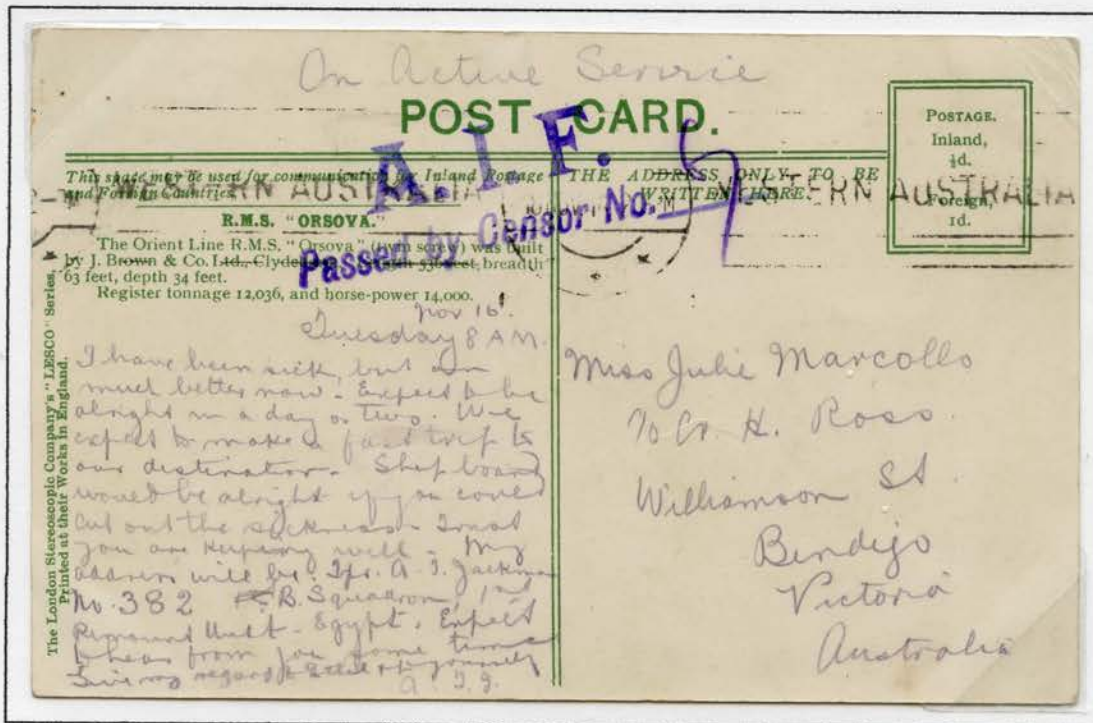 On Active Service
POST CARD.
A. I. F.
Passed by Censor No.
WESTERN AUSTRALIA
WESTERN AUSTRALIA
POSTAGE.
Inland,
½d.
Foreign,
1d.
This space may be used for communication for Inland Postage
and Foreign Countries.
R.M.S. "ORSOVA."
The Orient Line R.M.S. "Orsova" (twin screw) was built
by J. Brown & Co. Ltd., 536 feet, breadth
63 feet, depth 34 feet.
Register tonnage 12,036, and horse-power 14,000.
The London Stereoscopic Company's "LESCO" Series.
Printed at their Works in England.
Nov 16
Tuesday 8 AM.
I have been sick, but am
much better now. Expect to be
alright in a day or two. We
expect to make a fast trip to
our destination. Ship board
would be alright if you could
cut out the sickness. Trust
you are keeping well. My
address will be. Tpr. A. J. Jackman
No. 382 B. Squadron, 1st
Remount Unit. Egypt. Expect
to hear from you some time
Give my regards to & yourself
A. J. J.
THE ADDRESS ONLY TO BE
WRITTEN HERE.
Miss Julie Marcollo
c/o Cr. H. Ross
Williamson St
Bendigo
Victoria
Australia